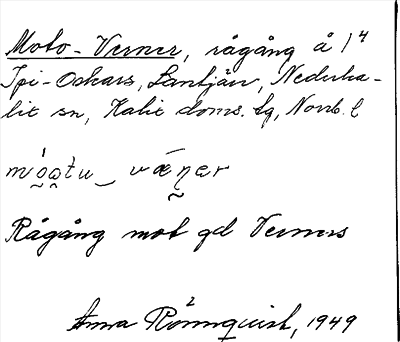 Moto-Verner, rågång å 1⁴
Spi-Oskars, Lantjärv, Nederka-
lix sn, Kalix doms. lg, Norrb. l
Rågång mot gd Verners
Anna Rönnquist, 1949